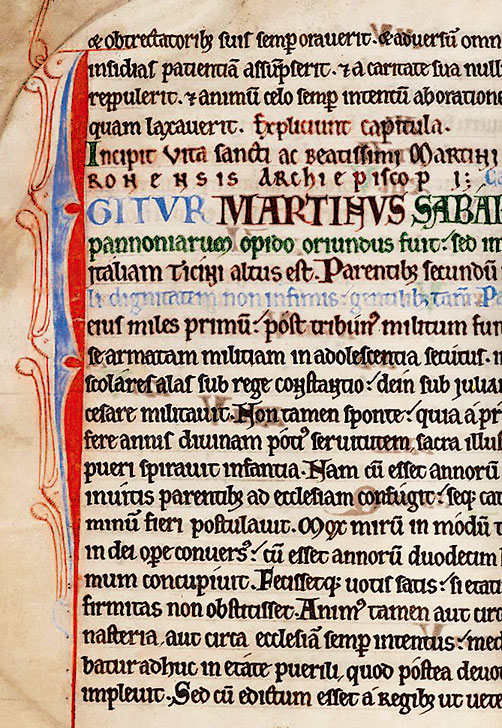 & obtrectatorib; suis semp orauerit. & aduersū omn
insidias patientiā assūpserit. & a caritate sua null
reppulerit. & animū celo semp intentū ab oratione
quam laxauerit. Expliciunt capitula.
Incipit vita sancti ac beatissimi Martini
ronensis archiepiscopi:
IGITUR MARTINUS SABAR
pannoniarum opido oriundus fuit: sed in
italiam ticini altus est. Parentib; secundū
li dignitatem non infimis: gentilib; tam̄. Pa
eius miles primū: post tribun' militum fui
se armatam militiam in adolescentia secutus.
scolares alas sub rege constantio: dein sub julia
cesare militauit. Non tamen sponte: quia a pri
fere annis diuinam poti' seruitutem, sacra illus
pueri spirauit infantia. Nam cū esset annorū
inuitis parentib; ad ecclesiam confugit: seq; cat
minū fieri postulauit. Mox mirū in modū t
in dei ope conuers': cū esset annorū duodecim
mum concupiuit. Fecissetq; uotis satis: si etati
firmitas non obstitisset. Anim' tamen aut circ
nasteria, aut circa ecclesiā semp intentus: med
batur adhuc in etate puerili, quod postea deuot
impleuit. Sed cū edictum esset a regib; ut uete